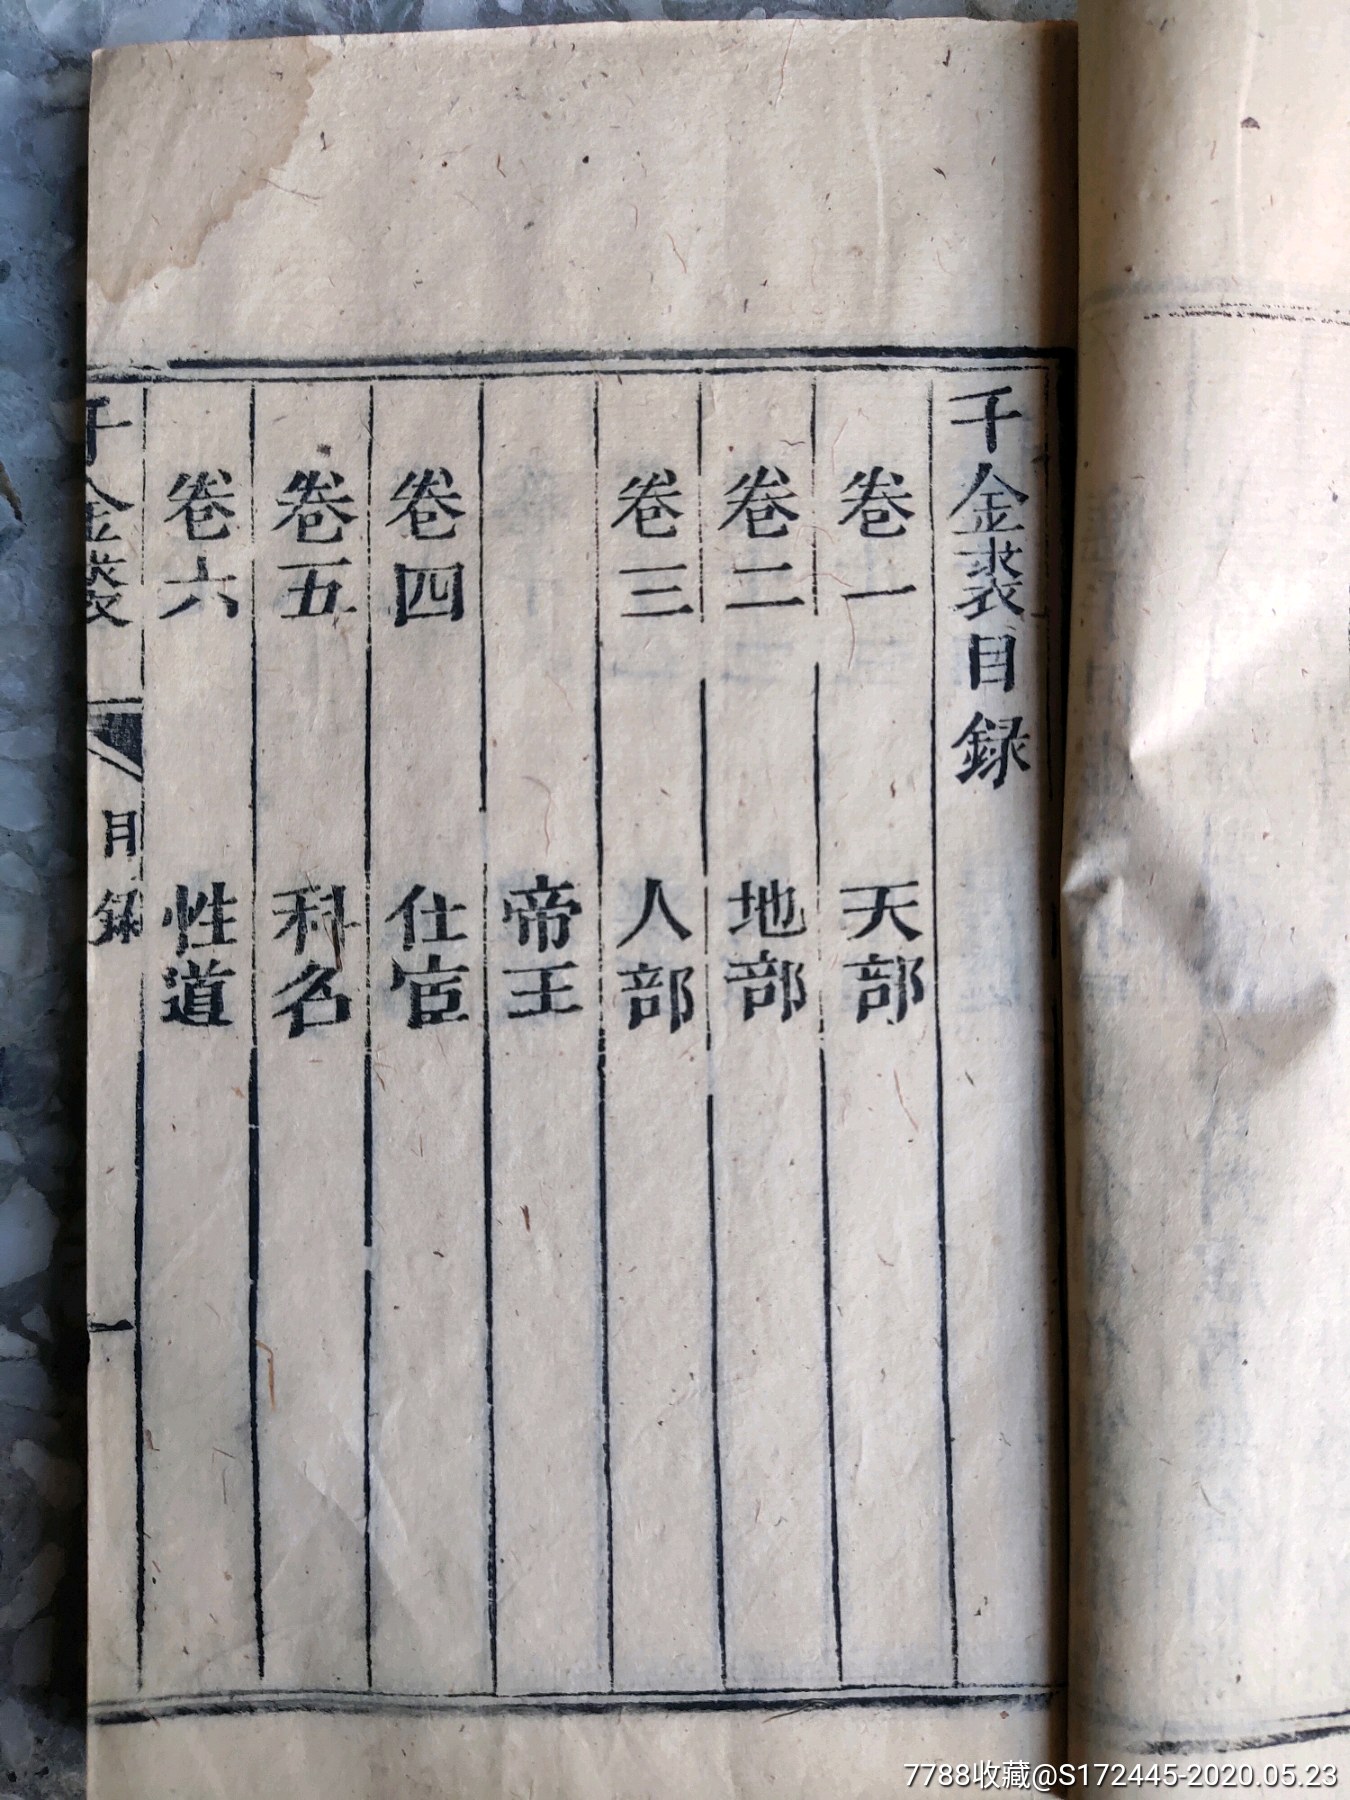 千金裘目録
卷一 天部
卷二 地部
卷三 人部
帝王
卷四 仕宦
卷五 科名
卷六 性道
千金裘 目錄 一
7788收藏@S172445-2020.05.23